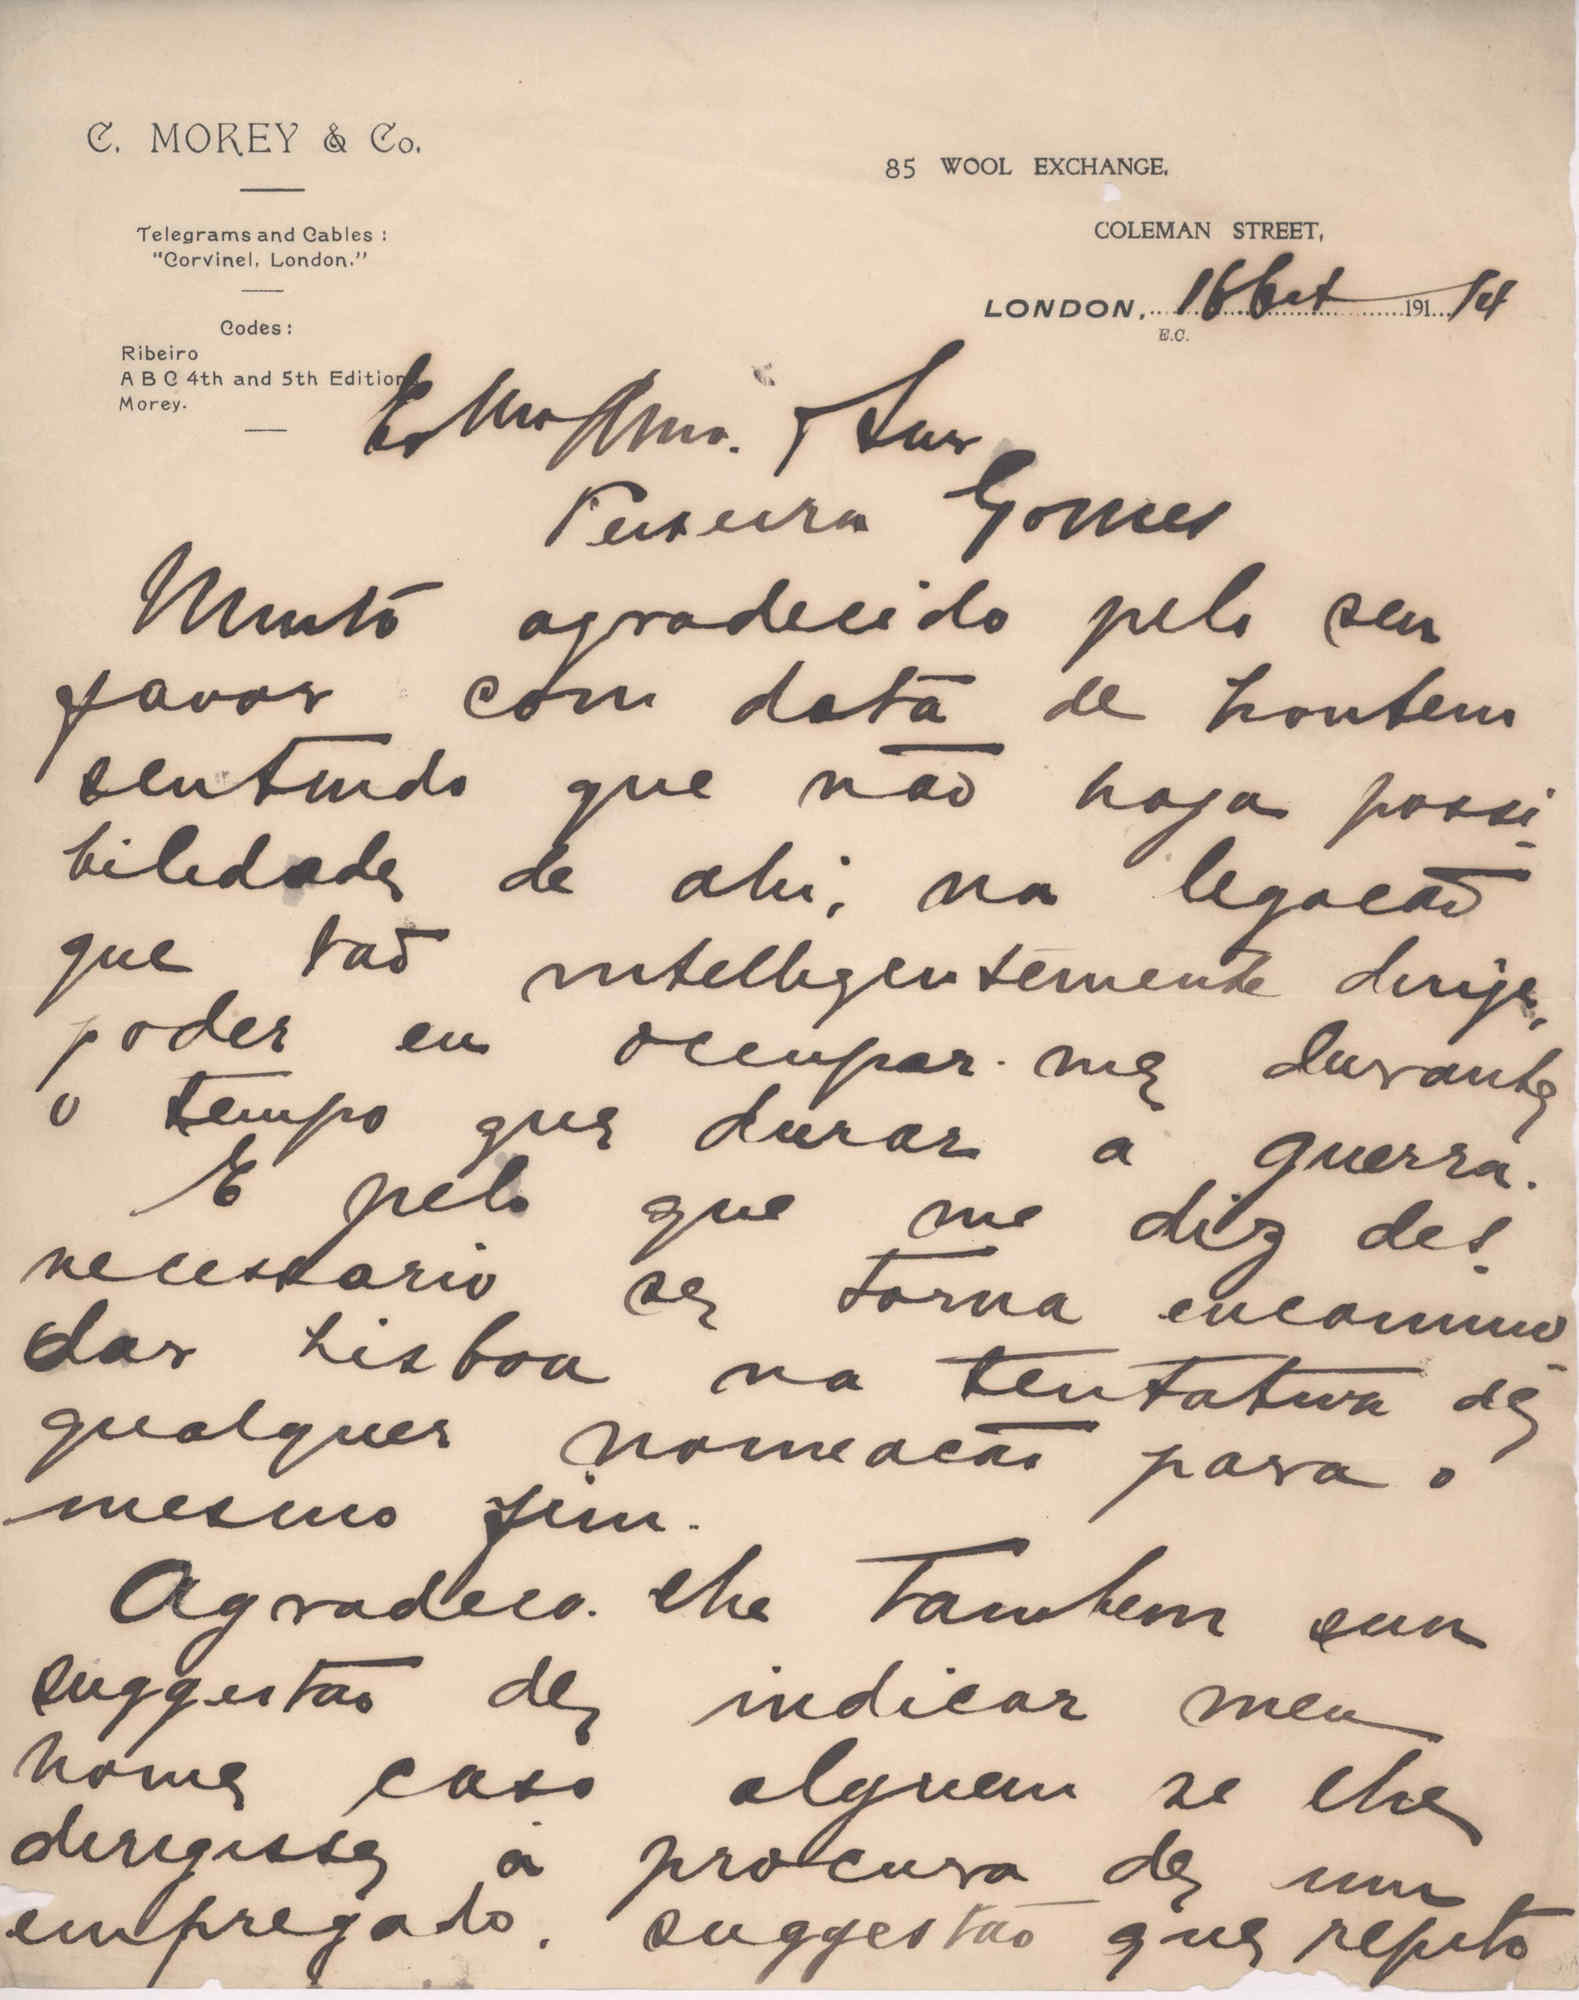 C. MOREY & Co.
Telegrams and Cables:
"Corvinel, London."
Codes:
Ribeiro
A B C 4th and 5th Edition
Morey.
85 WOOL EXCHANGE,
COLEMAN STREET,
LONDON, 16 Out 1914
E.C.
Exmo Amo. & Snr
Teixeira Gomes
Muito agradecido pelo seu
favor com data de hontem
sentindo que não haja possi-
bilidade de ahi, na legação
que tão intelligentemente dirije,
poder eu occupar-me durante
o tempo que durar a guerra.
E pelo que me diz des-
necessario se torna encommo-
dar Lisboa na tentativa de
qualquer nomeacão para o
mesmo fim.
Agradeco-lhe tambem sua
suggestão de indicar meu
nome caso alguem se lhe
dirigisse á procura de um
empregado, suggestão que reputo